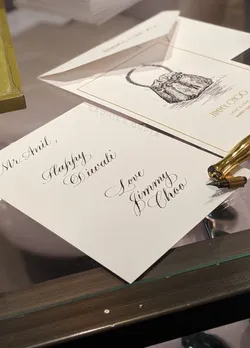 JIMMY CHOO
JIMMY CHOO
Mr Anil,
Happy
Diwali
Love
Jimmy
Choo